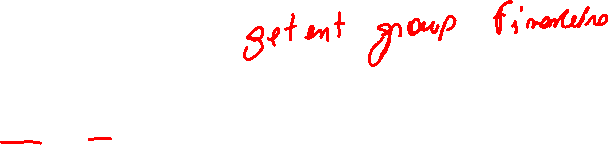 getent group financeiro